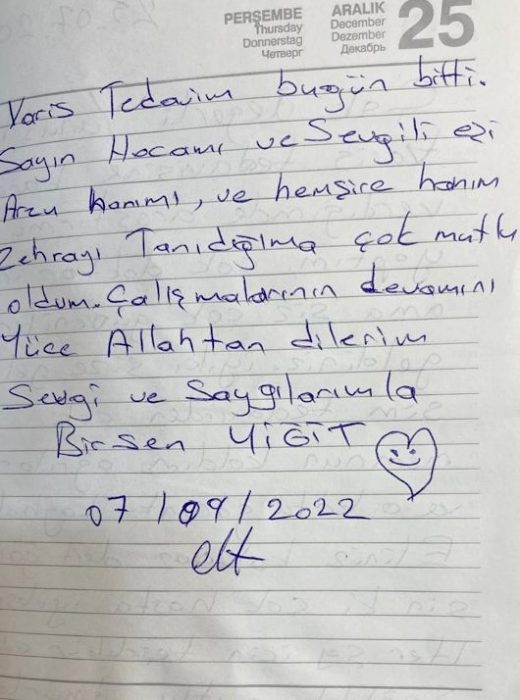 PERŞEMBE
Thursday
Donnerstag
Четверг
ARALIK
December
Dezember
Декабрь
25
Varis Tedavim bugün bitti.
Sayın Hocamı ve Sevgili eşi
Arzu hanımı, ve hemşire hanım
Zehrayı Tanıdığıma çok mutlu
oldum. Çalışmalarının devamını
Yüce Allahtan dilerim
Sevgi ve Saygılarımla
Birsen YİĞİT
07/09/2022